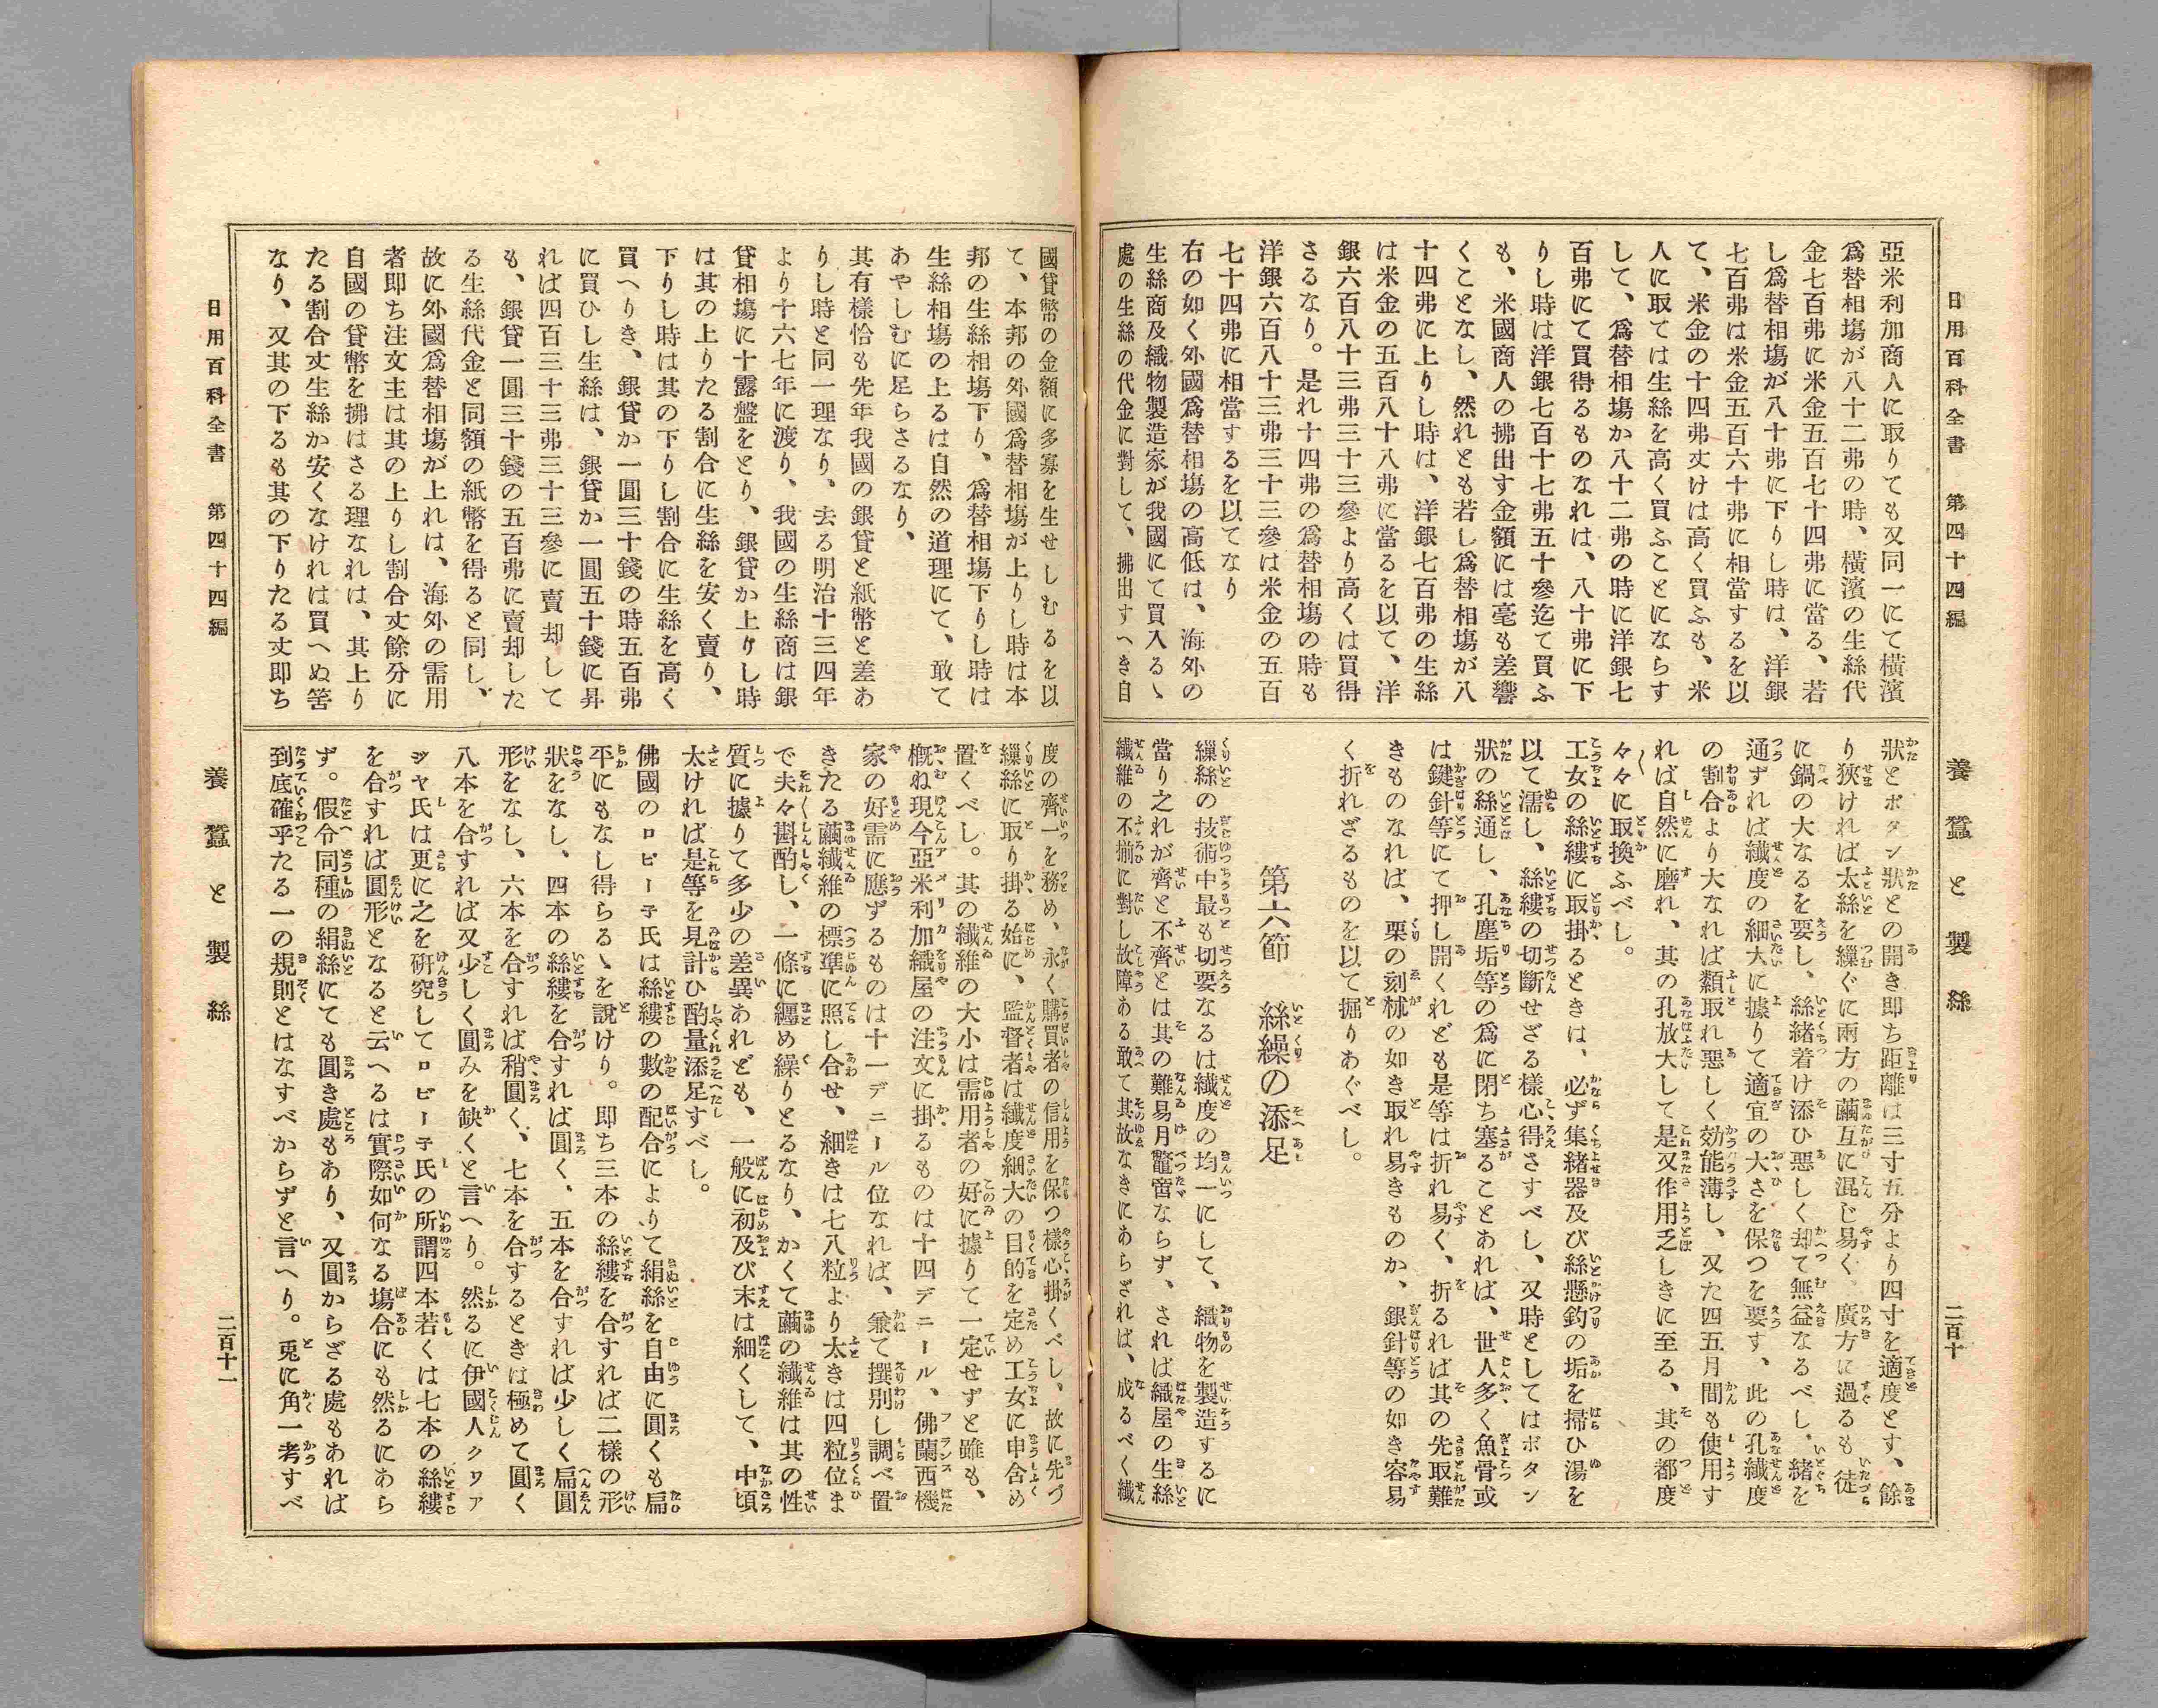 日用百科全書　第四十四編
養蠶と製絲
二百十
亞米利加商人に取りても又同一にて橫濱
爲替相塲が八十二弗の時、橫濱の生絲代
金七百弗に米金五百七十四弗に當る、若
し爲替相塲が八十弗に下りし時は、洋銀
七百弗は米金五百六十弗に相當するを以
て、米金の十四弗丈けは高く買ふも、米
人に取ては生絲を高く買ふことにならす
して、爲替相塲か八十二弗の時に洋銀七
百弗にて買得るものなれは、八十弗に下
りし時は洋銀七百十七弗五十參迄て買ふ
も、米國商人の拂出す金額には毫も差響
くことなし、然れとも若し爲替相塲が八
十四弗に上りし時は、洋銀七百弗の生絲
は米金の五百八十八弗に當るを以て、洋
銀六百八十三弗三十三參より高くは買得
さるなり。是れ十四弗の爲替相塲の時も
洋銀六百八十三弗三十三參は米金の五百
七十四弗に相當するを以てなり
右の如く外國爲替相塲の高低は、海外の
生絲商及織物製造家が我國にて買入るゝ
處の生絲の代金に對して、拂出すへき自
狀とボタン狀との開き即ち距離は三寸五分より四寸を適度とす、餘
り狹ければ太絲を繰ぐに兩方の繭互に混じ易く。廣方に過るも徒
に鍋の大なるを要し、絲緖着け添ひ惡しく却て無益なるべし、緖を
通ずれば纎度の細大に據りて適宜の大さを保つを要す、此の孔纎度
の割合より大なれば類取れ惡しく効能薄し、又た四五月間も使用す
れば自然に磨れ、其の孔放大して是又作用乏しきに至る、其の都度
々々に取換ふべし。
工女の絲縷に取掛るときは、必ず集緖器及び絲懸釣の垢を掃ひ湯を
以て濡し、絲縷の切斷せざる樣心得さすべし、又時としてはボタン
狀の絲通し、孔塵垢等の爲に閉ち塞ることあれば、世人多く魚骨或
は鍵針等にて押し開くれども是等は折れ易く、折るれば其の先取難
きものなれば、栗の刻秫の如き取れ易きものか、銀針等の如き容易
く折れざるものを以て掘りあぐべし。
第六節　絲繰の添足
繰絲の技術中最も切要なるは纎度の均一にして、織物を製造するに
當り之れが齊と不齊とは其の難易月鼈啻ならず、されば織屋の生絲
纎維の不揃に對し故障ある敢て其故なきにあらざれば、成るべく纎
國貨幣の金額に多寡を生せしむるを以
て、本邦の外國爲替相塲が上りし時は本
邦の生絲相塲下り、爲替相塲下りし時は
生絲相塲の上るは自然の道理にて、敢て
あやしむに足らさるなり、
其有樣恰も先年我國の銀貨と紙幣と差あ
りし時と同一理なり、去る明治十三四年
より十六七年に渡り、我國の生絲商は銀
貨相塲に十露盤をとり、銀貨か上りし時
は其の上りたる割合に生絲を安く賣り、
下りし時は其の下りし割合に生絲を高く
買へりき、銀貨か一圓三十錢の時五百弗
に買ひし生絲は、銀貨か一圓五十錢に昇
れば四百三十三弗三十三參に賣却して
も、銀貨一圓三十錢の五百弗に賣却した
る生絲代金と同額の紙幣を得ると同し、
故に外國爲替相塲が上れは、海外の需用
者即ち注文主は其の上りし割合丈餘分に
自國の貨幣を拂はさる理なれは、其上り
たる割合丈生絲か安くなけれは買へぬ筈
なり、又其の下るも其の下りたる丈即ち
度の齊一を務め、永く購買者の信用を保つ樣心掛くべし、故に先づ
繰絲に取り掛る始に、監督者は纎度細大の目的を定め工女に申含め
置くべし。其の纎維の大小は需用者の好に據りて一定せずと雖も、
概ね現今亞米利加織屋の注文に掛るものは十四デニール、佛蘭西機
家の好需に應ずるものは十一デニール位なれば、兼て撰別し調べ置
きたる繭纎維の標準に照し合せ、細きは七八粒より太きは四粒位ま
で夫々斟酌し、一條に纒め繰りとるなり、かくて繭の纎維は其の性
質に據りて多少の差異あれども、一般に初及び末は細くして、中頃
太ければ是等を見計ひ酌量添足すべし。
佛國のロビー子氏は絲縷の數の配合によりて絹絲を自由に圓くも扁
平にもなし得らるゝを說けり。即ち三本の絲縷を合すれば二樣の形
狀をなし、四本の絲縷を合すれば圓く、五本を合すれば少しく扁圓
形をなし、六本を合すれば稍圓く、七本を合するときは極めて圓く
八本を合すれば又少しく圓みを缺くと言へり。然るに伊國人クワァ
ジヤ氏は更に之を硏究してロビー子氏の所謂四本若くは七本の絲縷
を合すれば圓形となると云へるは實際如何なる塲合にも然るにあら
ず。假令同種の絹絲にても圓き處もあり、又圓からざる處もあれば
到底確乎たる一の規則とはなすべからずと言へり。兎に角一考すべ
日用百科全書　第四十四編
養蠶と製絲
二百十一